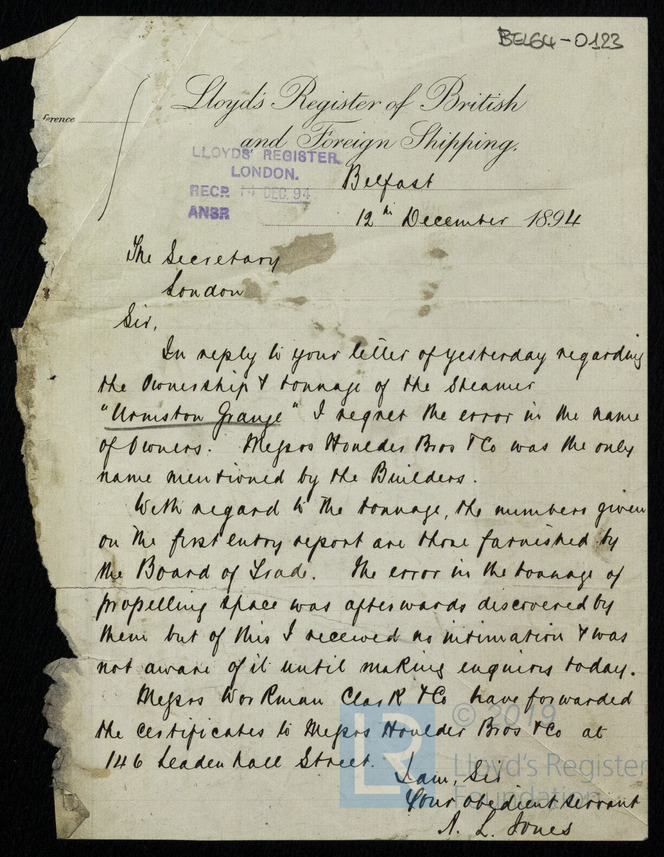 BEL64-0123
Lloyd's Register of British
and Foreign Shipping.
LLOYDS' REGISTER,
LONDON.
RECD. 14 DEC. 94
ANSR
Belfast
12th December 1894
The Secretary
London
Sir,
In reply to your letter of yesterday regarding
the Ownership & tonnage of the Steamer
"Urmston Grange" I regret the error in the name
of Owners. Messrs Houlder Bros & Co was the only
name mentioned by the Builders.
With regard to the tonnage, the numbers given
on the first entry report are those furnished by
the Board of Trade. The error in the tonnage of
propelling space was afterwards discovered by
them but of this I received no intimation & was
not aware of it until making enquiries today.
Messrs Workman Clark & Co have forwarded
the certificates to Messrs Houlder Bros & Co at
146 Leadenhall Street.
I am, Sir
Your obedient servant
A. L. Jones
© 2019
Lloyd's Register
Foundation